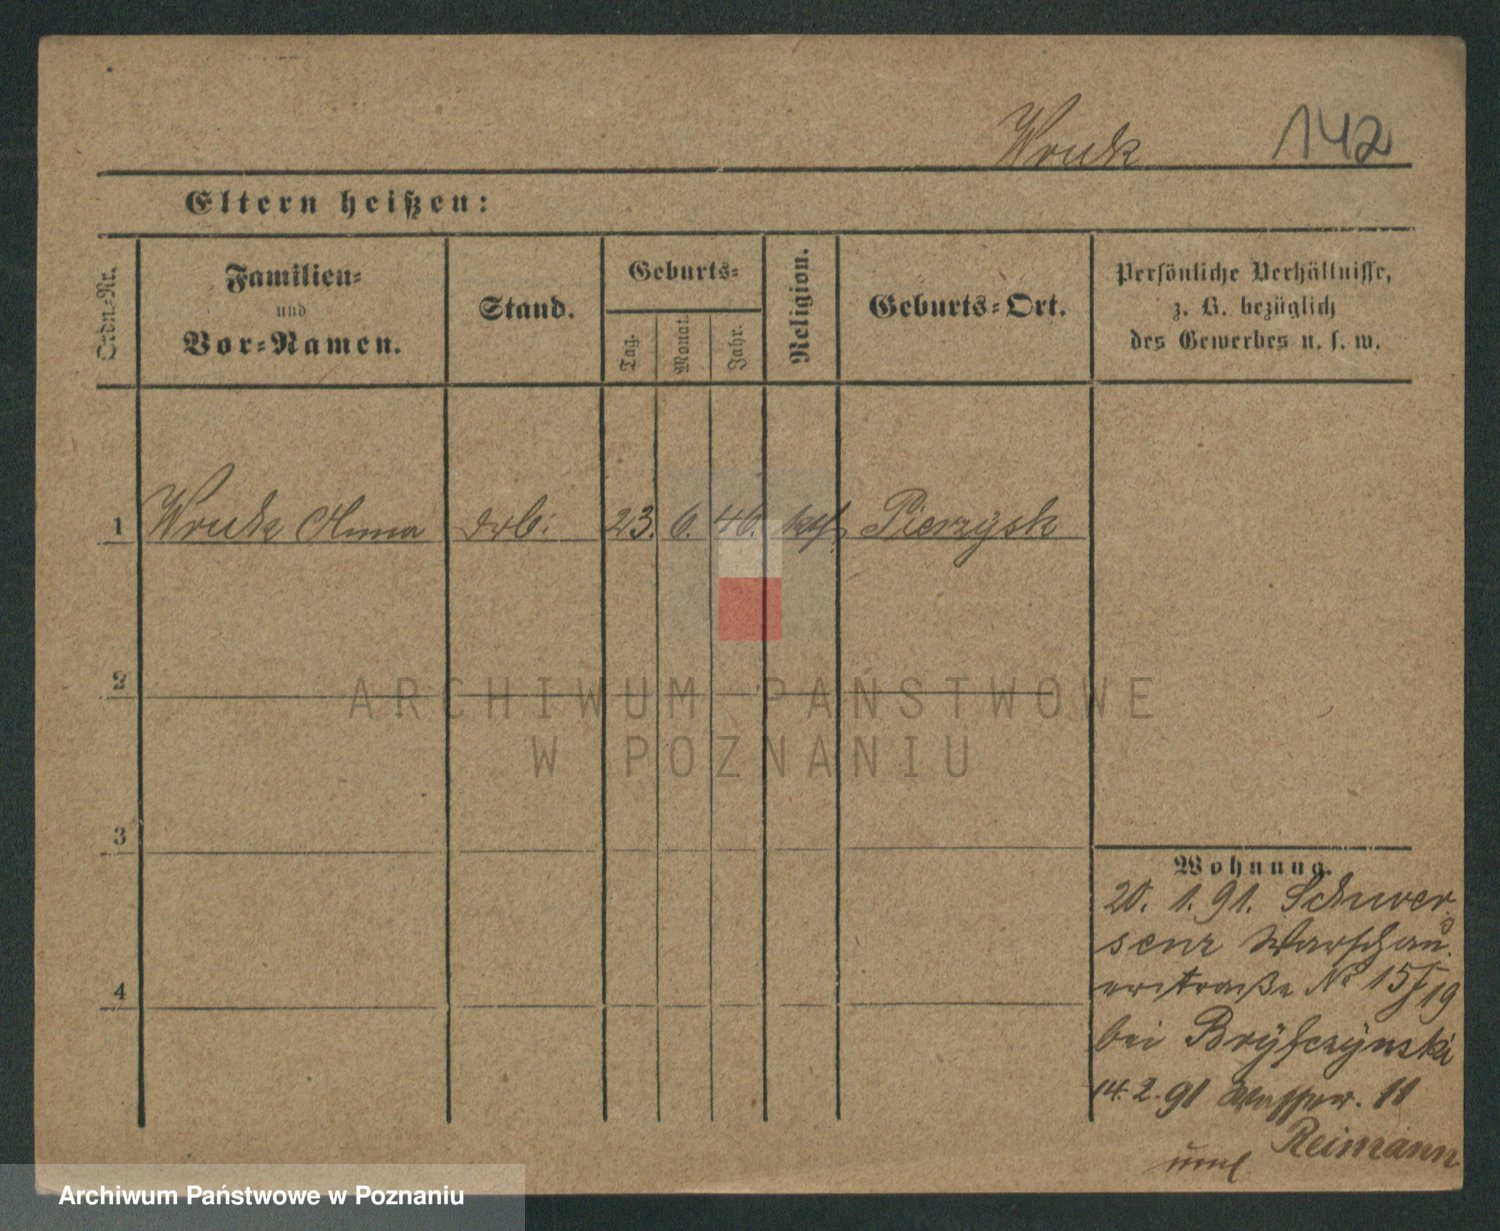 Wruck 142
Eltern heißen:
Ordn.-Nr.
Familien-
und
Vor-Namen.
Stand.
Geburts-
Tag.
Monat.
Jahr.
Religion.
Geburts-Ort.
Persönliche Verhältnisse,
z. B. bezüglich
des Gewerbes u. s. w.
1 Wruck Anna 23. 6. 46. kth. Pierzysk
2
3
4
Wohnung.
20. 1. 91. Schwer
senz Warschau
erstraße No 15/19
bei
14. 2. 91 Wasser. 11
Reimann
ARCHIWUM PAŃSTWOWE
W POZNANIU
Archiwum Państwowe w Poznaniu